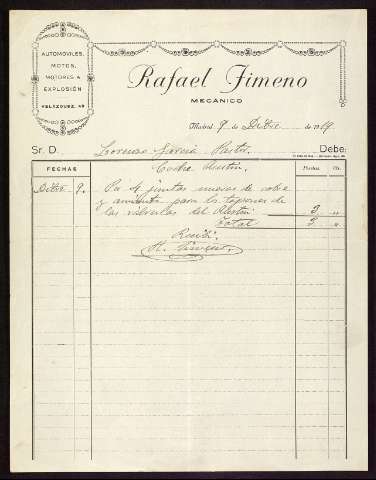 AUTOMOVILES,
MOTOS,
MOTORES A
EXPLOSIÓN
VELAZQUEZ, 49
Rafael Jimeno
MECÁNICO
Madrid 9 de Dicbre de 1919
Sr. D. Lorenzo García Debe:
Coche Austin.
FECHAS Pesetas Cts.
Dicbre 9. Por 4 juntas nuevas de cobre
y amianto para los tapones de
las válvulas del Austin 3 "
Total 3 "
Recibí
R. Jimeno